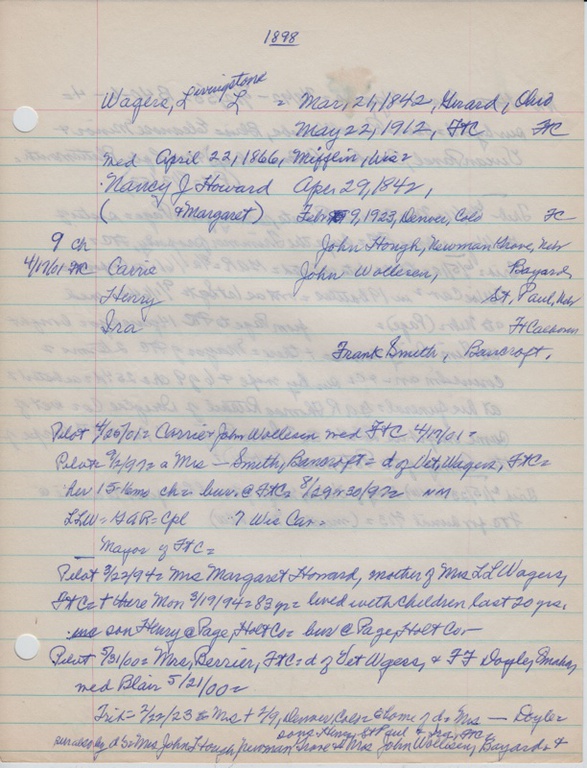 1898
Wagers, Livingstone L = Mar, 21, 1842, Girard, Ohio
May 22, 1912, FtC FC
med April 22, 1866, Mifflin, Wis=
Nancy J Howard Aper 29, 1842,
( &Margaret) Feb 9, 1923, Denver, Colo FC
9 Ch John Hough, Newman Grove, Nebr
4/17/01 FtC Carrie John Wolleson, Bayard,
Henry St. Paul, Neb
Ira Ft Calhoun
Frank Smith, Bancroft,
Pilot 4/25/01= Carrie & John Wolleson med FtC 4/17/01=
Pilot= 9/2/97= a Mrs — Smith, Bancroft = d of Vet Wagers, FtC=
her 15-16mo ch= bur. @ FtC= 8/29 or 30/97= NM
LLW= GAR= Cpl 7 Wis Cav=
Mayor of FtC=
Pilot 3/22/94= Mrs Margaret Howard, mother of Mrs LL Wagers,
FtC= + there Mon 3/19/94= 83 yr= lived with children last 20 yrs.
son Henry @ Page, Holt Co= bur @ Page, Holt Co-
Pilot 5/31/00= Mrs, Berrier, FtC= d of Vet Wgers, & FF Doyle, Omaha,
med Blair 5/21/00=
Trib= 2/22/23 = Mrs + 2/9, Denver, Colo= @ home of d= Mrs — Doyle=
sons Henry, St Paul & Ira, FtC
survived by d's= Mrs John Hough, Newman Grove & Mrs John Wolleson, Bayard= &